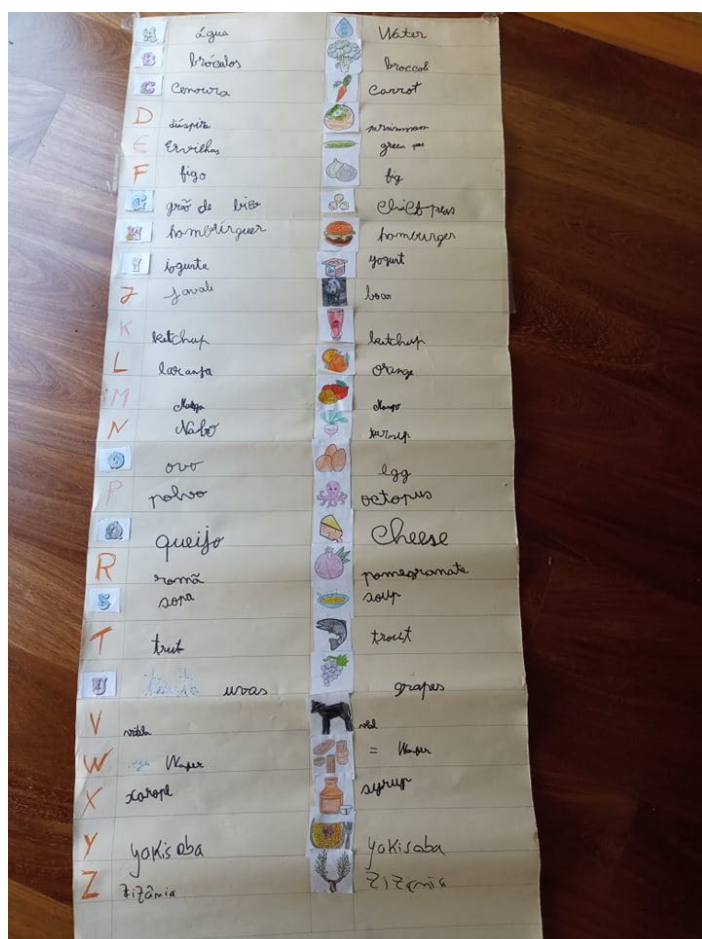 A água Water
B brócolos broccoli
C Cenoura Carrot
D dióspiro persimmon
E Ervilhas green pea
F figo fig
G grão de bico Chick peas
H hambúrguer hamburger
I iogurte yogurt
J javali boar
K ketchup ketchup
L laranja orange
M Manga Mango
N Nabo turnip
O ovo egg
P polvo octopus
Q queijo cheese
R romã pomegranate
S sopa soup
T trut trout
U uvas grapes
V vitela
W =
X xarope syrup
Y yakisoba yakisoba
Z Zizânia Zizania